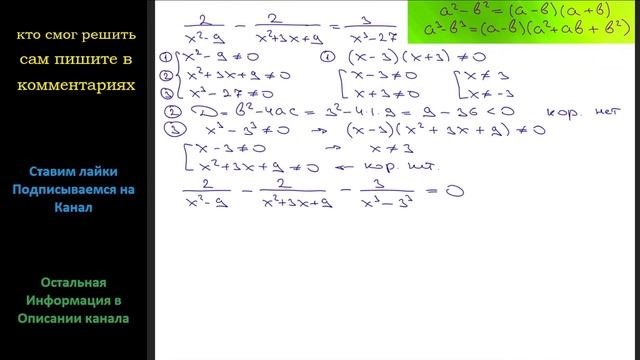 кто смог решить
сам пишите в
комментариях
Ставим лайки
Подписываемся на
Канал
Остальная
Информация в
Описании канала
a² - b² = (a - b)(a + b)
a³ - b³ = (a - b)(a² + ab + b²)
2/(x² - 9) - 2/(x² + 3x + 9) = 3/(x³ - 27)
① { x² - 9 ≠ 0 ① (x - 3)(x + 3) ≠ 0
② x² + 3x + 9 ≠ 0 [ x - 3 ≠ 0 [ x ≠ 3
③ x³ - 27 ≠ 0 x + 3 ≠ 0 x ≠ -3
② D = b² - 4ac = 3² - 4·1·9 = 9 - 36 < 0 кор. нет
③ x³ - 3³ ≠ 0 → (x - 3)(x² + 3x + 9) ≠ 0
[ x - 3 ≠ 0 → x ≠ 3
x² + 3x + 9 ≠ 0 ← кор. нет.
2/(x² - 9) - 2/(x² + 3x + 9) - 3/(x³ - 3³) = 0